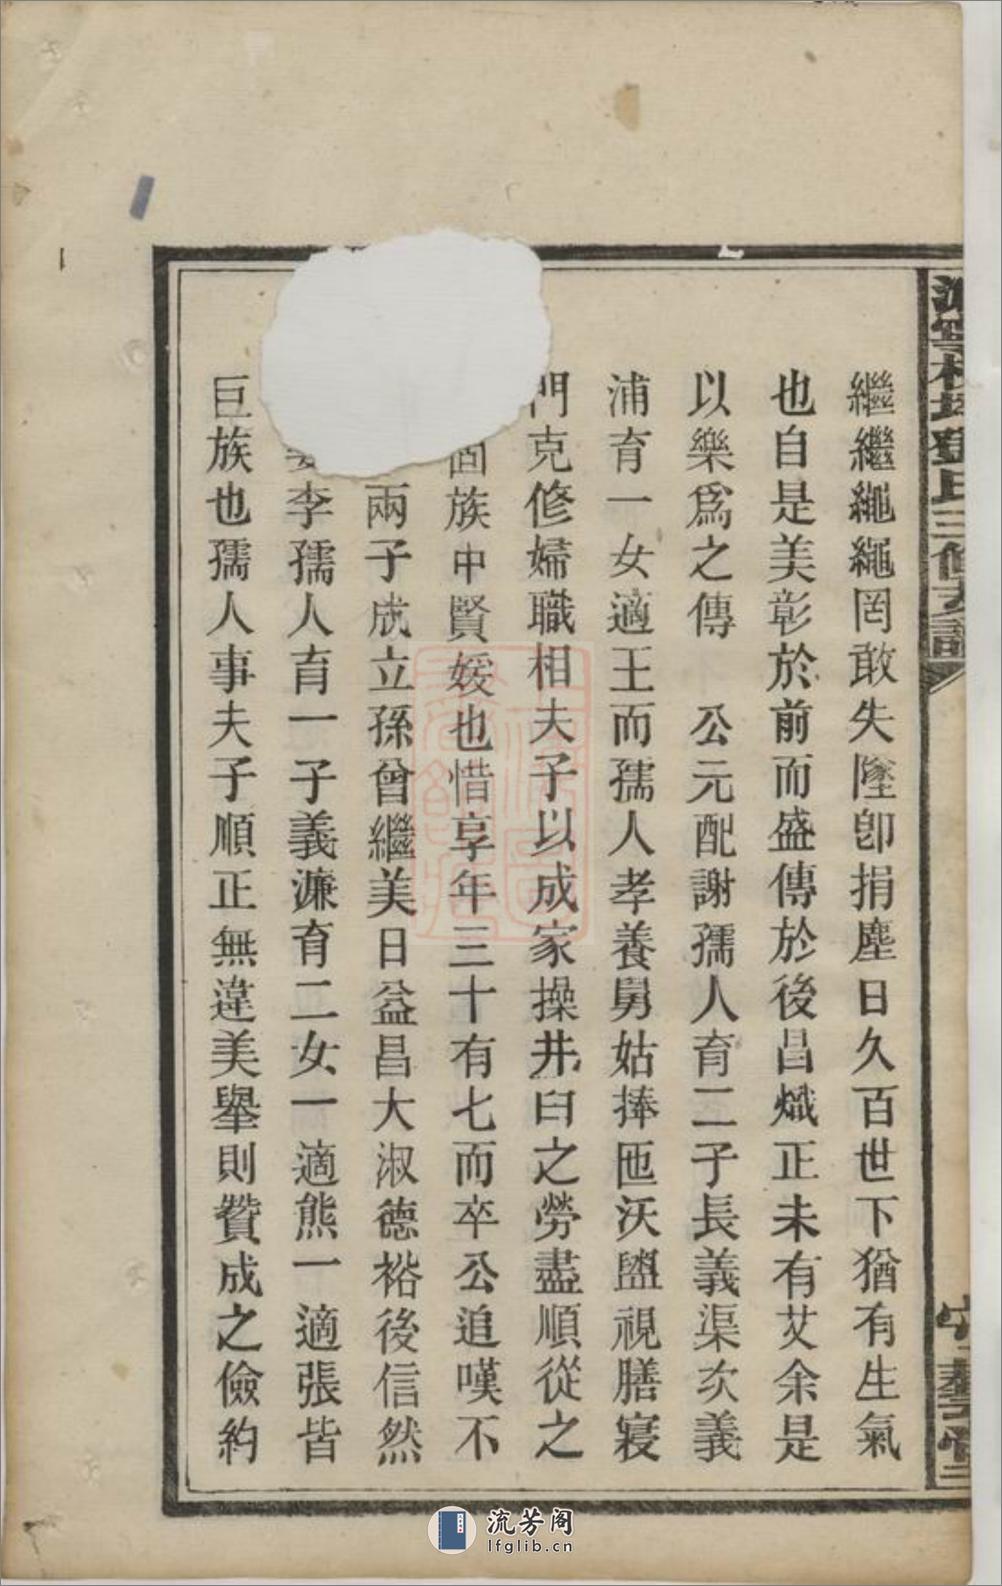 繼繼繩繩罔敢失墜卽捐塵日久百世下猶有生氣
也自是美彰於前而盛傳於後昌熾正未有艾余是
以樂爲之傳　公元配謝孺人育二子長義渠次義
浦育一女適王而孺人孝養舅姑捧匜沃盥視膳寢
門克修婦職相夫子以成家操井臼之勞盡順從之
固族中賢媛也惜享年三十有七而卒公追嘆不
兩子成立孫曾繼美日益昌大淑德裕後信然
李孺人育一子義濂育二女一適熊一適張皆
巨族也孺人事夫子順正無違美舉則贊成之儉約
鄧氏三修支譜
流芳阁
lfglib.cn